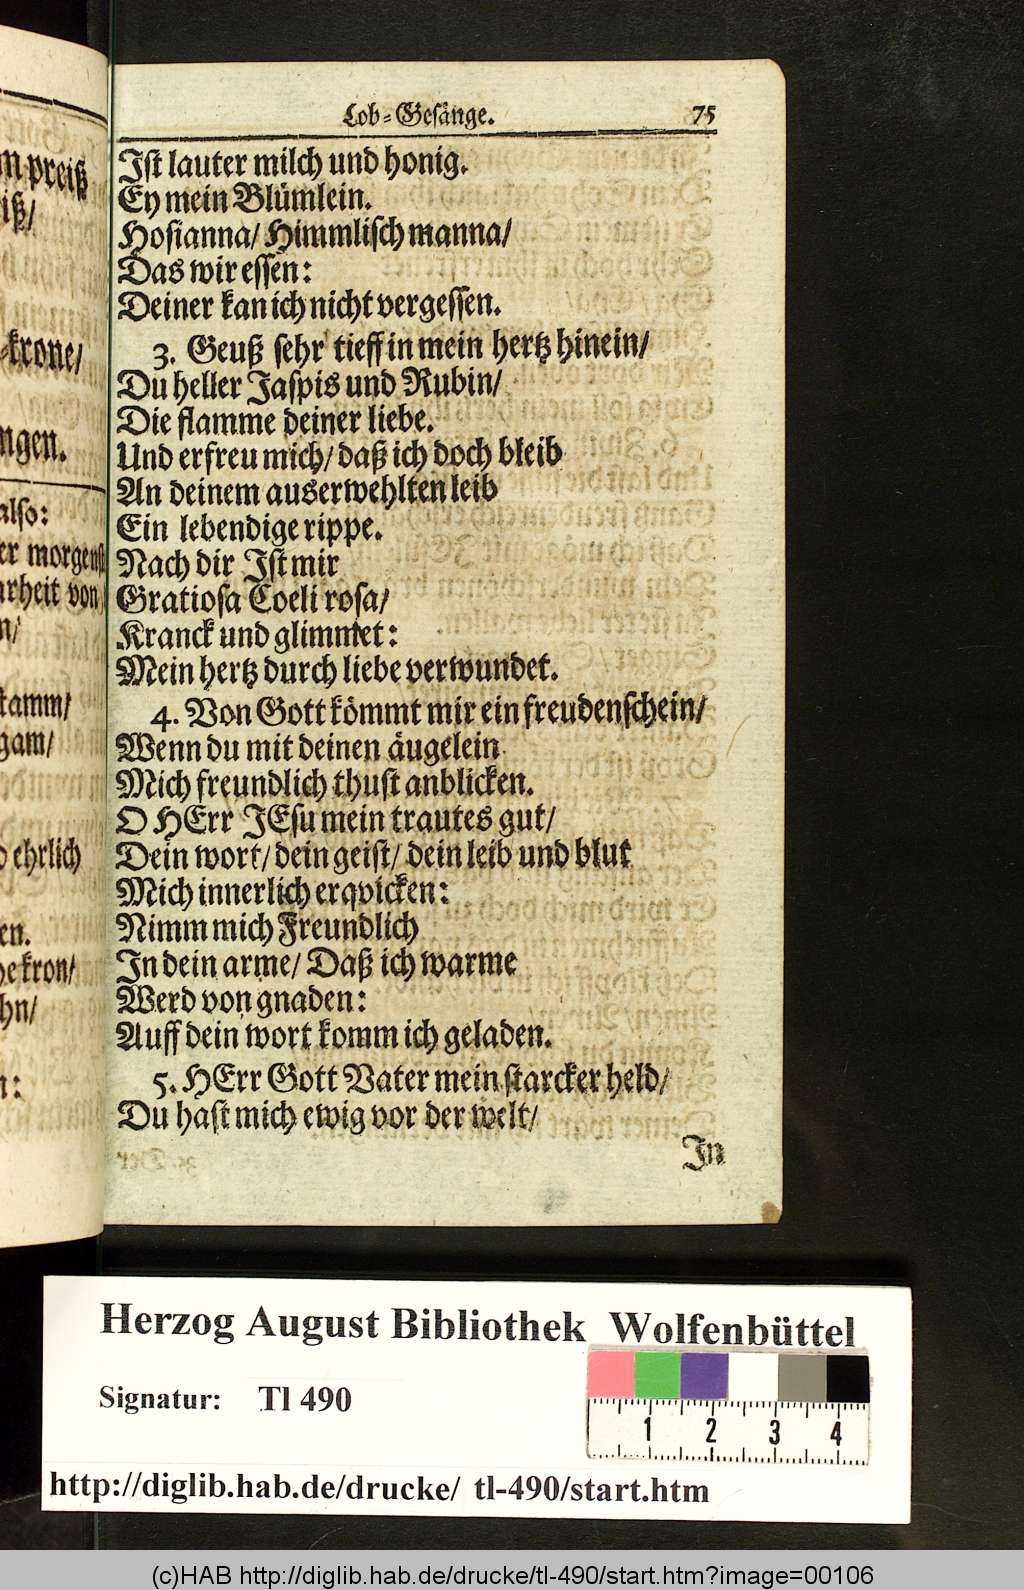 Lob-Gesänge. 75
Ist lauter milch und honig.
Ey mein Blümlein.
Hosianna/ Himmlisch manna/
Das wir essen:
Deiner kan ich nicht vergessen.
3. Geuß sehr tieff in mein hertz hinein/
Du heller Jaspis und Rubin/
Die flamme deiner liebe.
Und erfreu mich/ daß ich doch bleib
An deinem auserwehlten leib
Ein lebendige rippe.
Nach dir Ist mir
Gratiosa Coeli rosa/
Kranck und glimmet:
Mein hertz durch liebe verwundet.
4. Von Gott kömmt mir ein freudenschein/
Wenn du mit deinen äugelein
Mich freundlich thust anblicken.
O HErr JEsu mein trautes gut/
Dein wort/ dein geist/ dein leib und blut
Mich innerlich erqvicken:
Nimm mich Freundlich
In dein arme/ Daß ich warme
Werd von gnaden:
Auff dein wort komm ich geladen.
5. HErr Gott Vater mein starcker held/
Du hast mich ewig vor der welt/
In
m preiß
iß/
-krone/
ngen.
also:
er morgenst
arheit von
n/
tamm/
gam/
ehrlich
en.
he kron/
hn/
n:
Herzog August Bibliothek Wolfenbüttel
Signatur: Tl 490
1 2 3 4
http://diglib.hab.de/drucke/ tl-490/start.htm
(c)HAB http://diglib.hab.de/drucke/tl-490/start.htm?image=00106